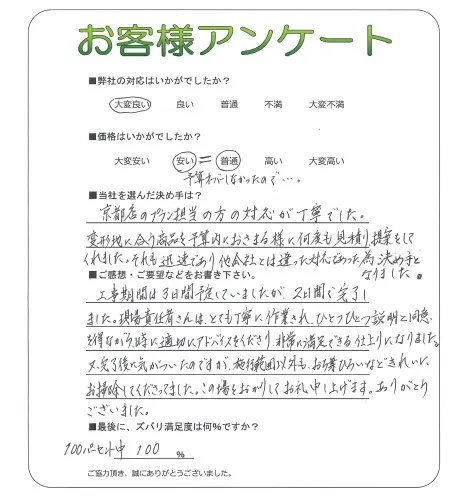 お客様アンケート
■弊社の対応はいかがでしたか？
大変良い 良い 普通 不満 大変不満
■価格はいかがでしたか？
大変安い 安い = 普通 高い 大変高い
予算オーバーしなかったので…。
■当社を選んだ決め手は？
京都店のプラン担当の方の対応が丁寧でした。
変形地に合う商品を予算内におさまる様に何度も見積り提案をして
くれました。それも迅速であり他会社とは違った対応であった為決め手と
なりました。
■ご感想・ご要望などをお書き下さい。
工事期間は3日間予定していましたが、2日間で完了し
ました。現場責任者さんは、とても丁寧に作業され、ひとつひとつ説明と同意
を得ながら時に適切にアドバイスをくださり、非常に満足できる仕上りになりました。
又、完了後に気がついたのですが、施行範囲以外も、お落ち葉ひろいなどきれいに
お掃除してくださってました。この場をおかりしてお礼申し上げます。ありがとう
ございました。
■最後に、ズバリ満足度は何%ですか？
100パーセント中 100 %
ご協力頂き、誠にありがとうございました。